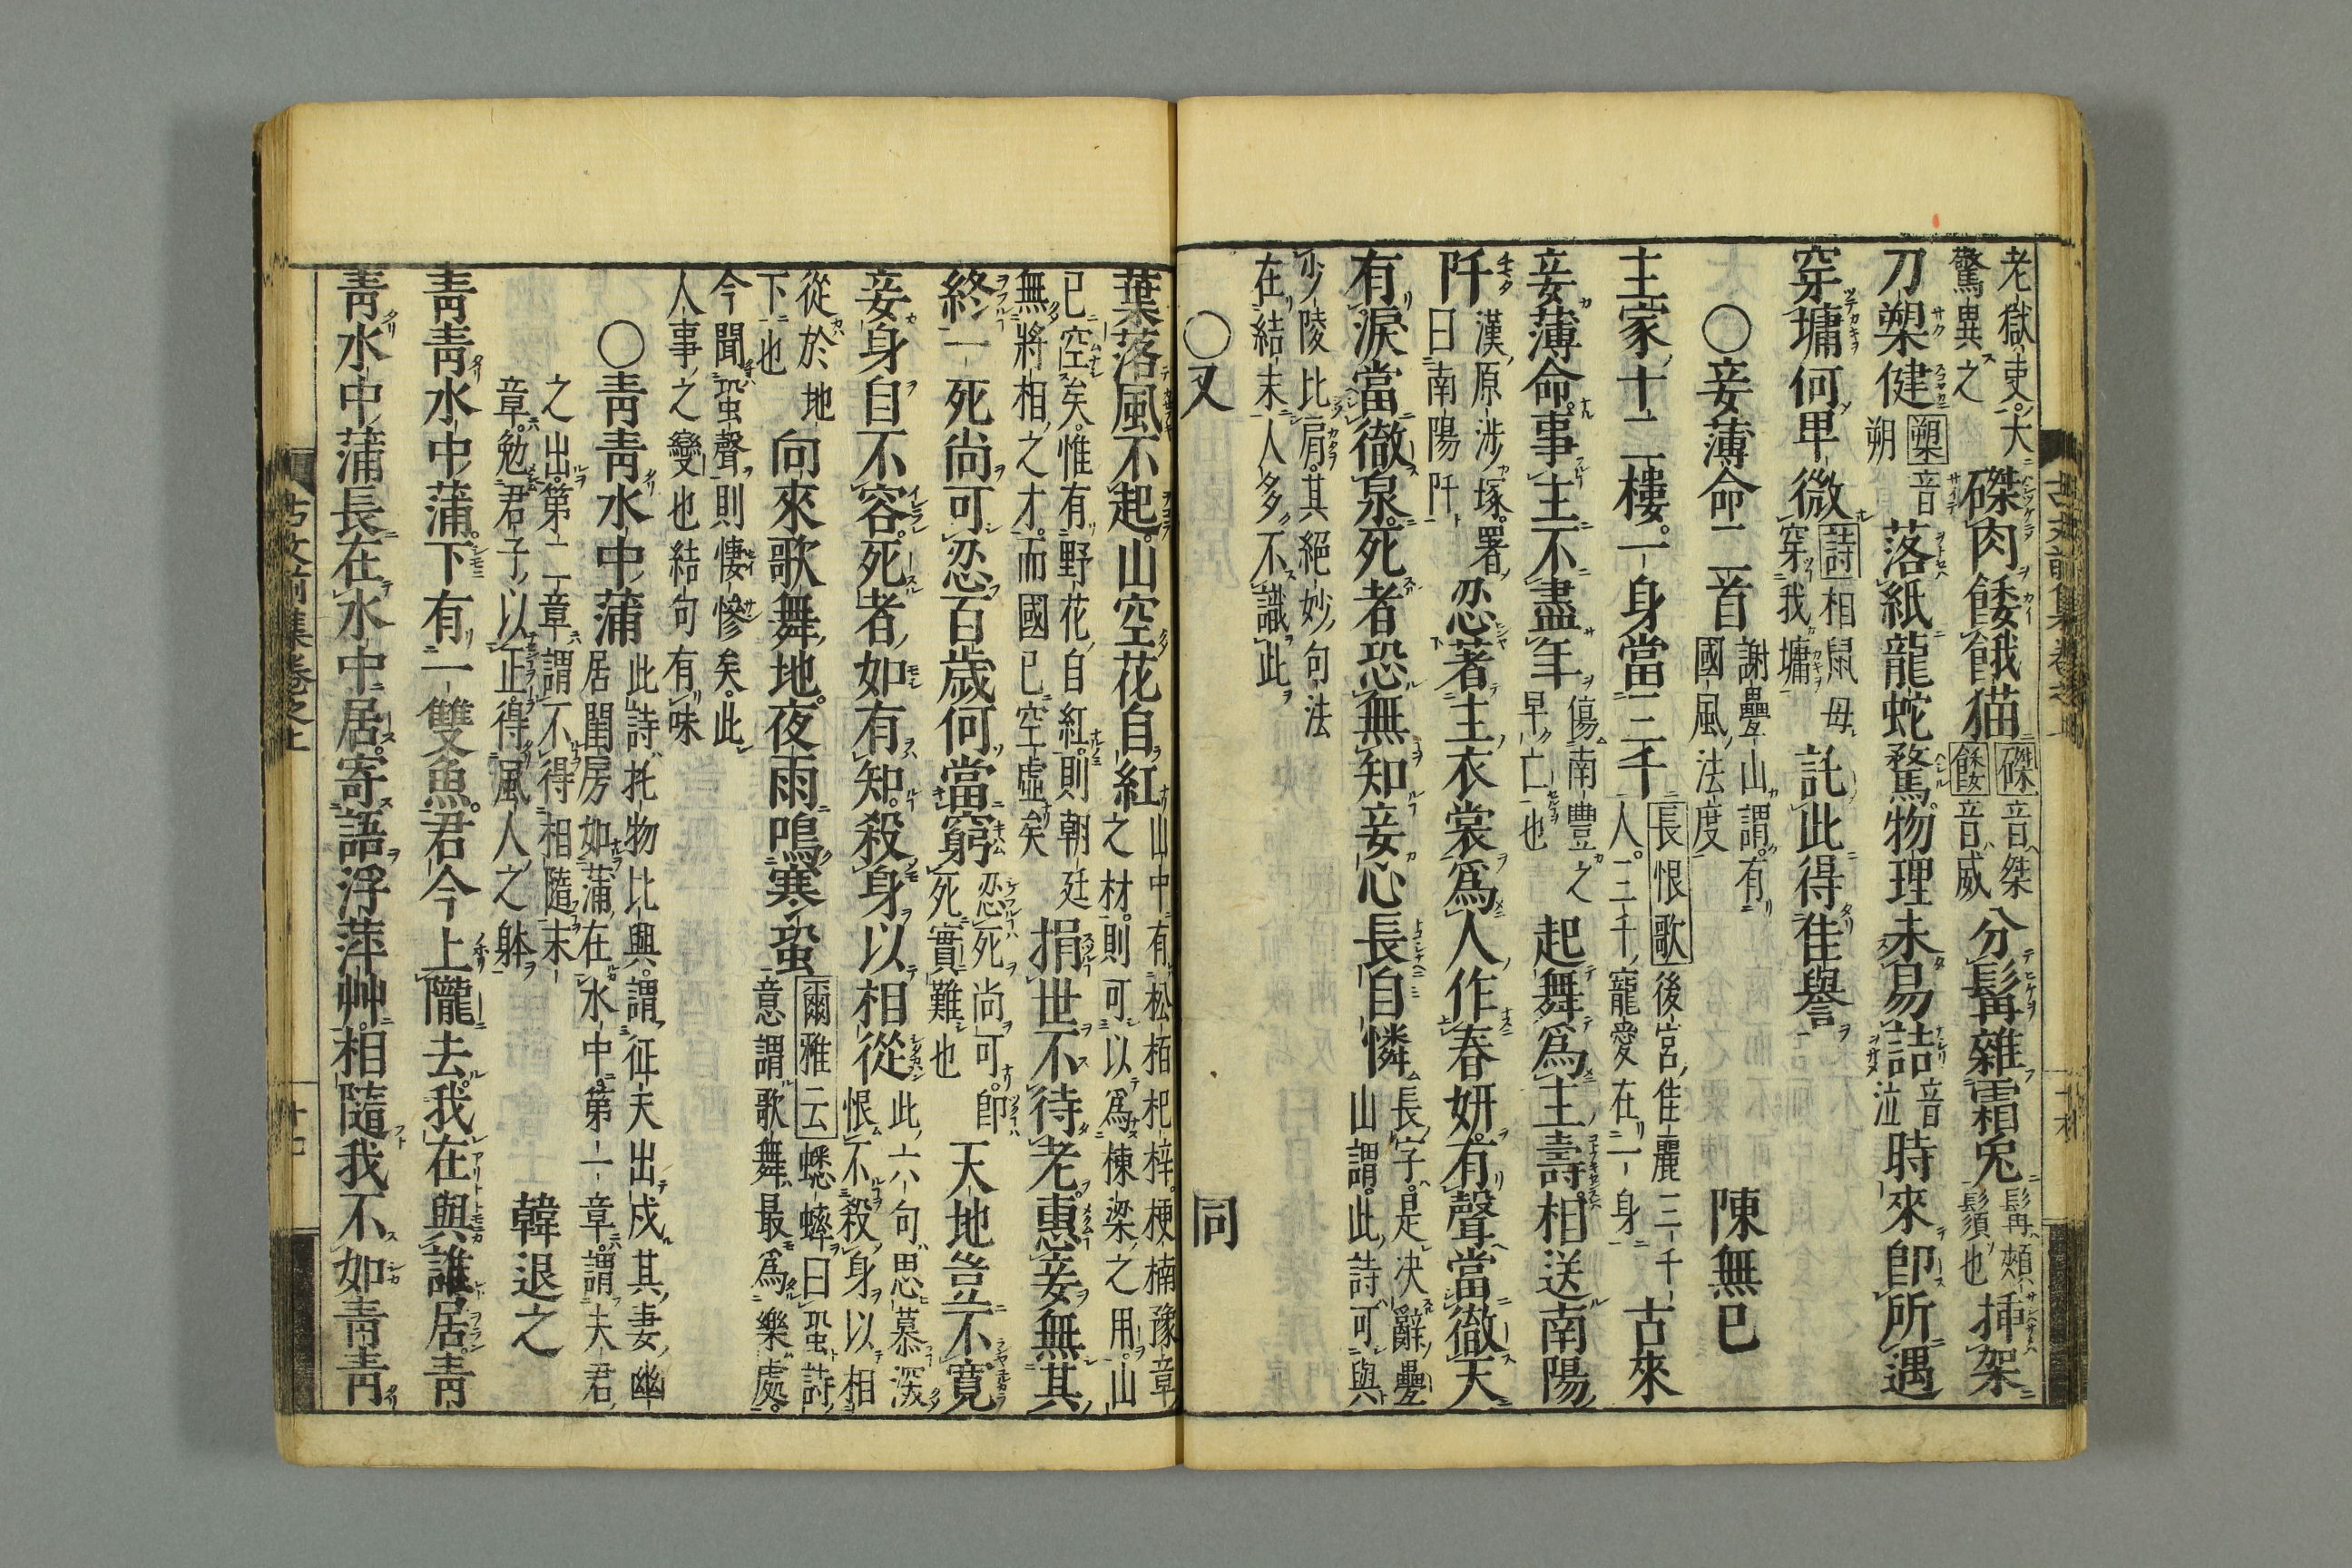 老獄吏大
驚異之
磔肉餧餓猫
磔音桀
餧音威
分髯雜霜兎
髯頰
鬚也
挿架
刀槊健
槊音
朔
落紙龍蛇騖物理未易詰
音
泣
時來卽所遇
穿墉何卑微
詩相鼠毋
穿我墉
託此得佳譽
○妾薄命二首
謝疊山謂有
國風法度
陳無已
主家十二樓一身當三千
長恨歌後宮佳麗三千
人三千寵愛在一身
古來
妾薄命事主不盡年
傷南豐之
早亡也
起舞爲主壽相送南陽
阡
漢原涉塚署
曰南陽阡
忍著主衣裳爲人作春妍有聲當徹天
有淚當徹泉死者恐無知妾心長自憐
長字是决辭疊
山謂此詩可與
少陵比肩其絕妙句法
在結末人多不識此
○又
同
葉落風不起山空花自紅
山中有松栢杞梓梗楠豫章
之材則可以爲棟梁之用山
已空矣惟有野花自紅則朝廷
無將相之才而國已空虛矣
捐世不待老惠妾無其
終一死尚可忍百歲何當窮
忍死尚可卽
死實難也
天地豈不寬
妾身自不容死者如有知殺身以相從
此六句思慕深
恨不殺身以相
從於地
下也
向來歌舞地夜雨鳴寒蛩
爾雅云蟋蟀曰蛩詩
意謂歌舞最爲樂處
今聞蛩聲則悽慘矣此
人事之變也結句有味
○靑靑水中蒲
此詩托物比興謂征夫出戍其妻幽
居閨房如蒲在水中第一章謂夫君
之出第二章謂不得相隨末
章勉君子以正得風人之躰
韓退之
靑靑水中蒲下有一雙魚君今上隴去我在與誰居靑
靑水中蒲長在水中居寄語浮萍艸相隨我不如靑靑
古文前集卷之上